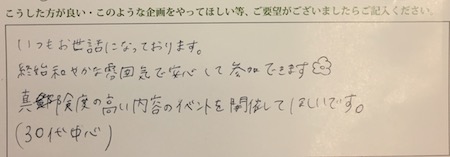 こうした方が良い・このような企画をやってほしい等、ご要望がございましたらご記入ください。
いつもお世話になっております。
終始和やかな雰囲気で安心して参加できます
真険度の高い内容のイベントを開催してほしいです。
(30代中心)